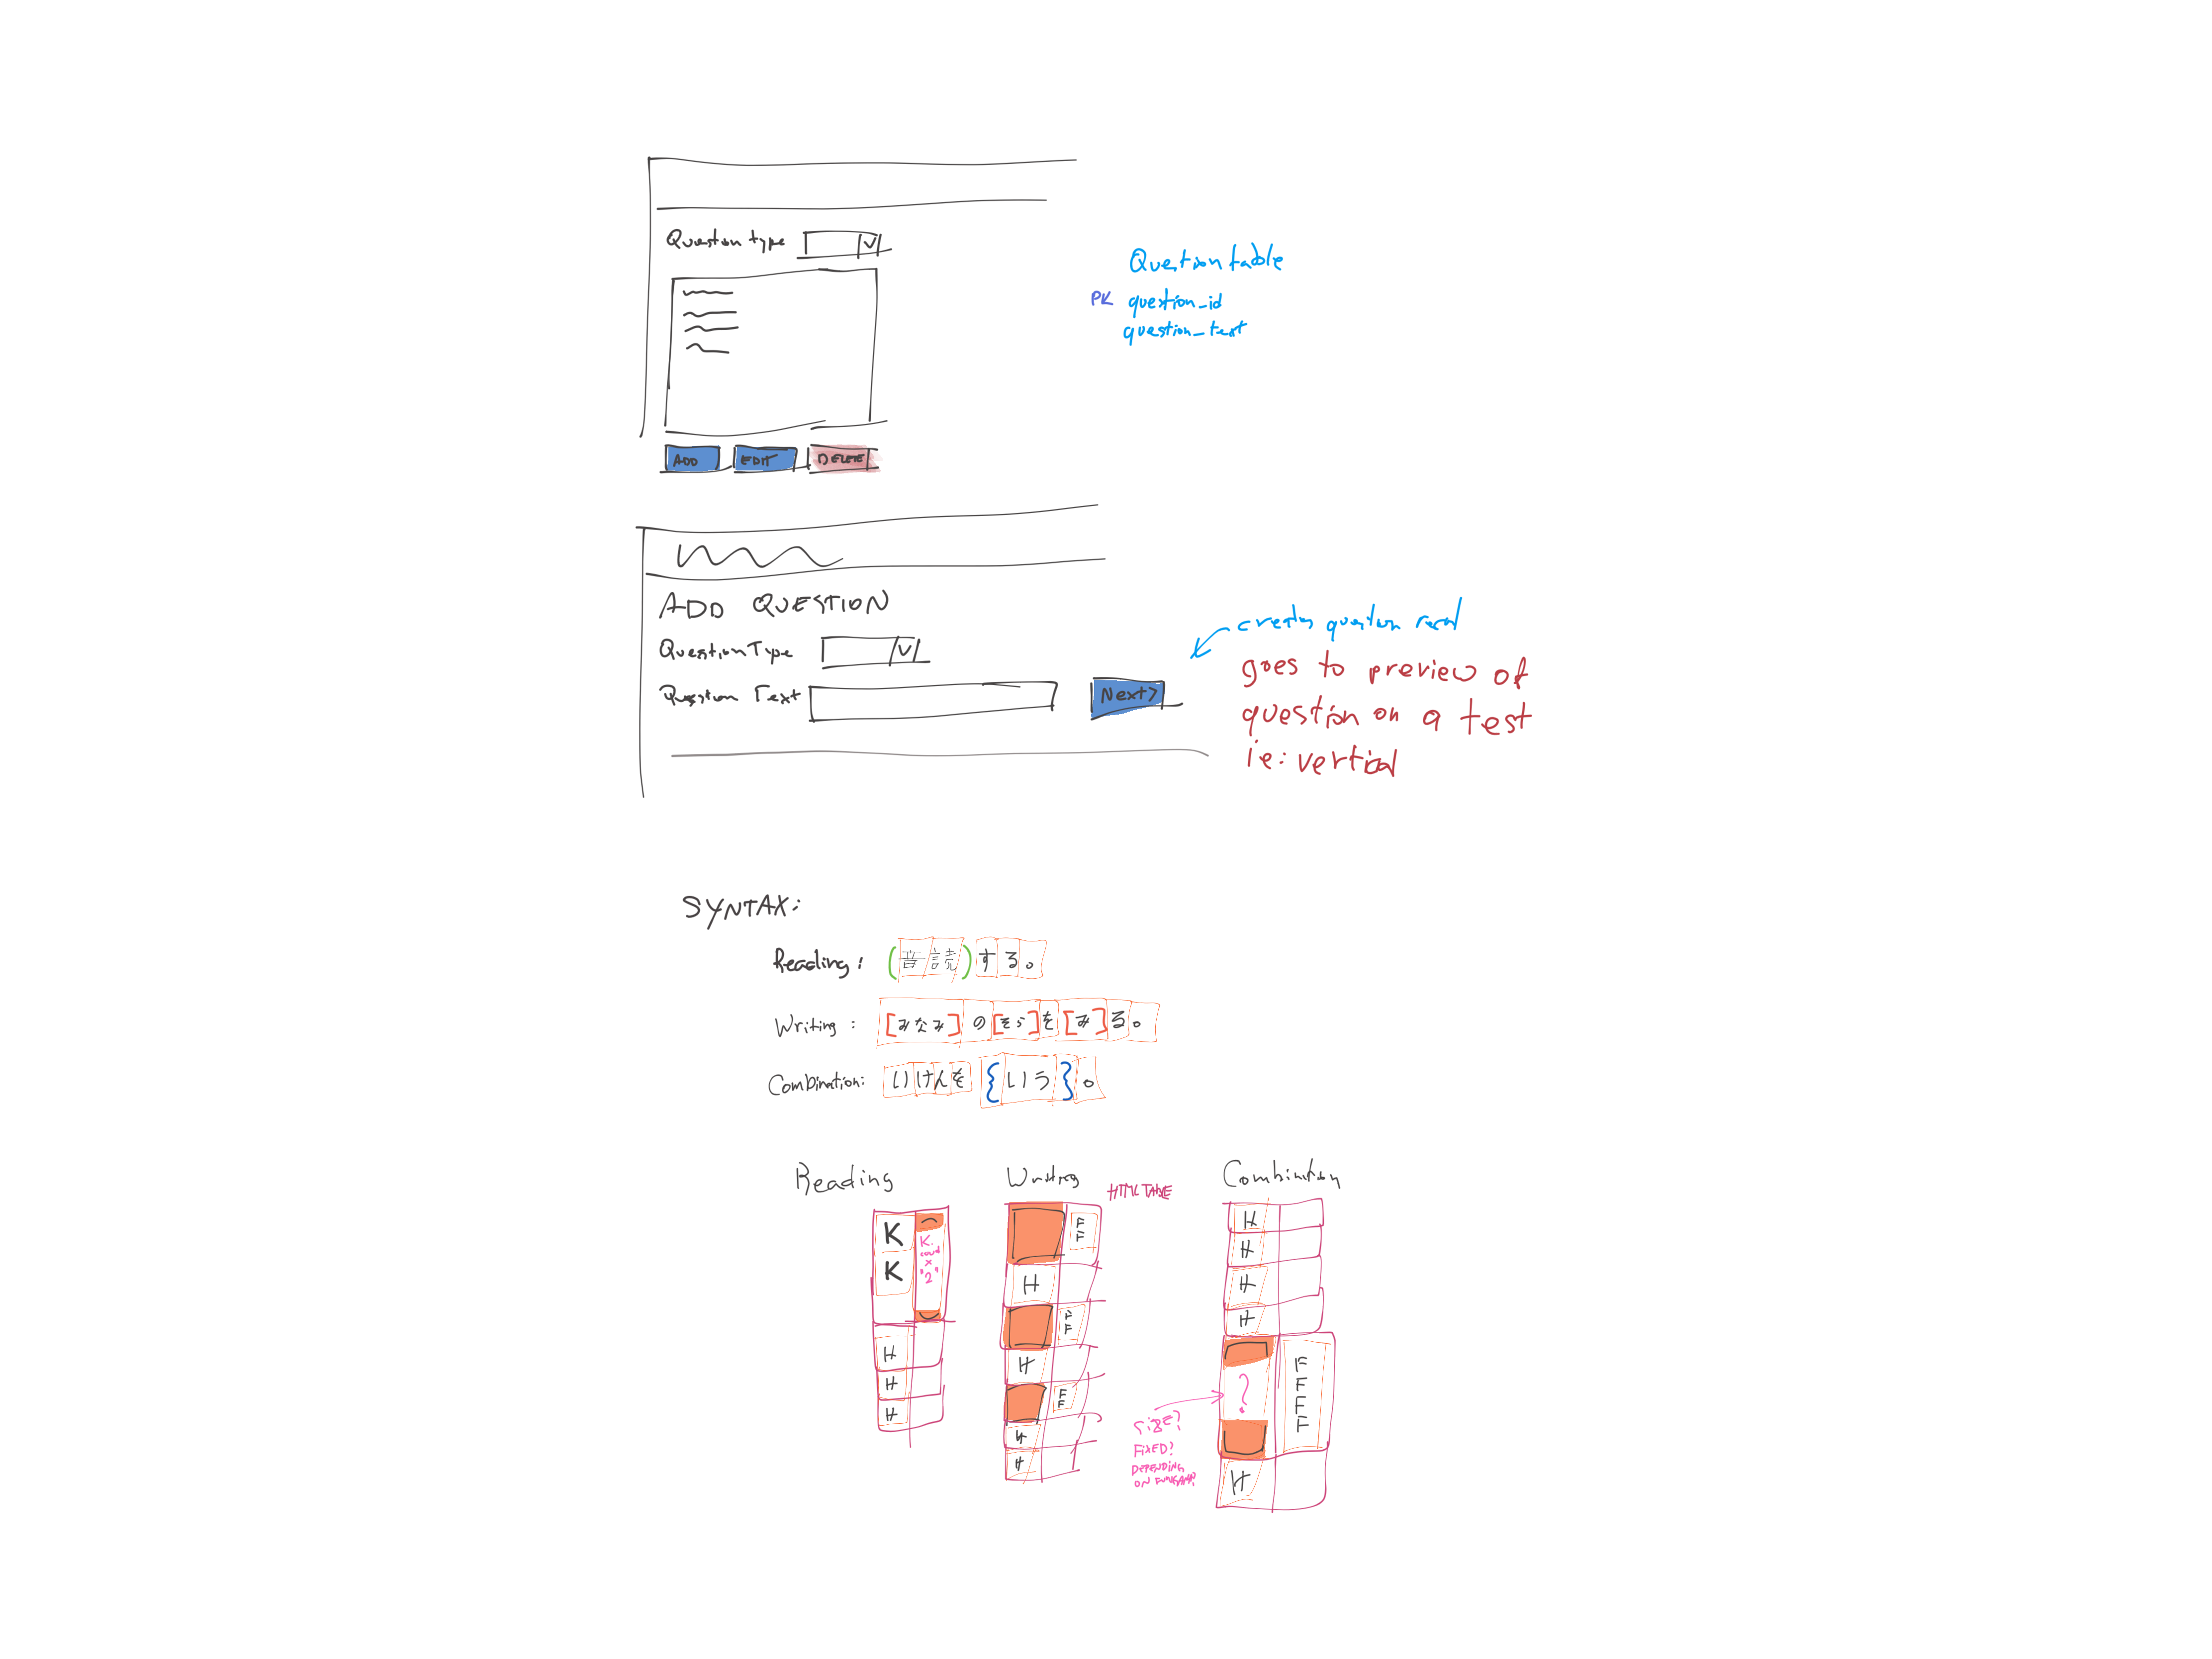 Question type
V
ADD EDIT DELETE
Question table
PK question_id
question_text
ADD QUESTION
Question Type
V
Question Text
Next>
creates question
goes to preview of
question on a test
ie: vertical
SYNTAX:
Reading: (音読)する。
Writing: [みなみ]の[そら]を[み]る。
Combination: いけんを{いう}。
Reading
K
K
K.
x
"2"
H
H
H
Writing
HTML TABLE
F
F
H
F
F
H
F
F
H
H
Combination
H
H
H
H
?
F
F
F
F
H
SIZE?
FIXED?
DEPENDING
ON